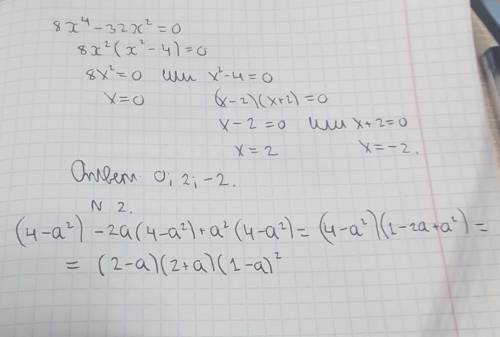 8x⁴-32x²=0
8x²(x²-4)=0
8x²=0 или x²-4=0
x=0 (x-2)(x+2)=0
x-2=0 или x+2=0
x=2 x=-2.
Ответ 0; 2; -2.
N 2.
(4-a²)-2a(4-a²)+a²(4-a²)=(4-a²)(1-2a+a²)=
=(2-a)(2+a)(1-a)²